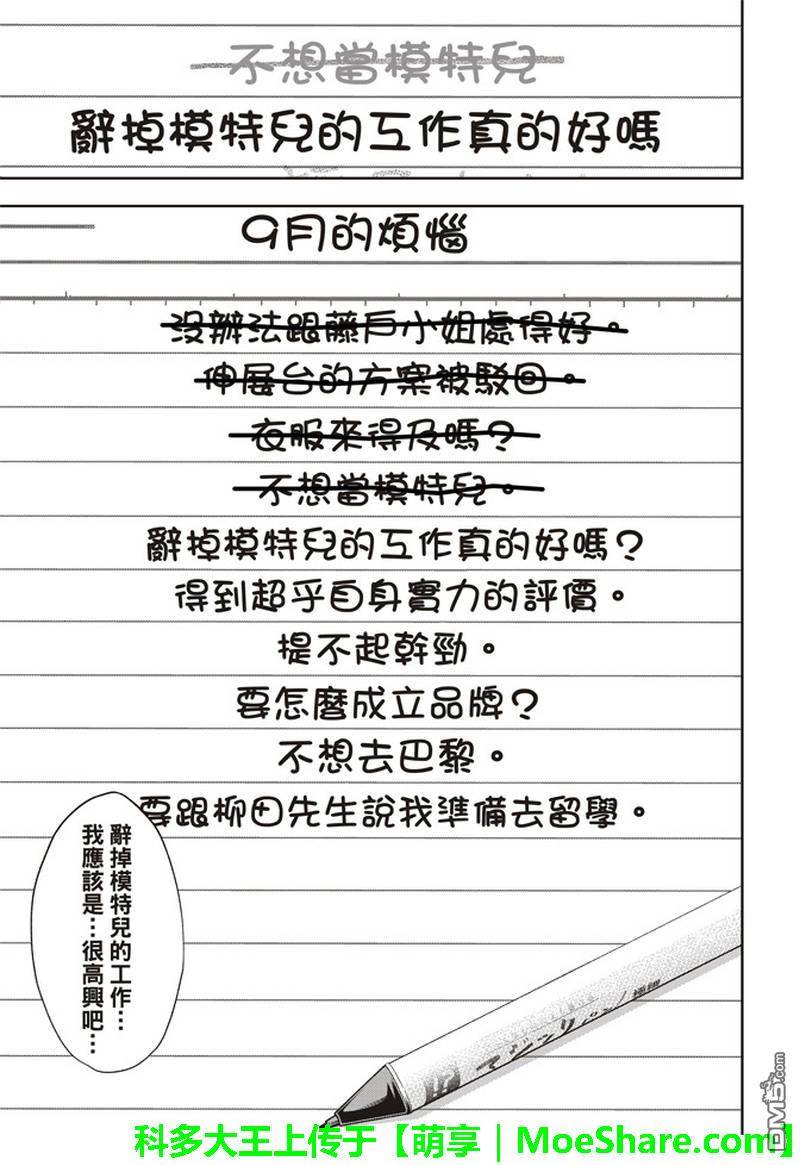 不想當模特兒
辭掉模特兒的工作真的好嗎
9月的煩惱
沒辦法跟藤戶小姐處得好。
伸展台的方案被駁回。
衣服來得及嗎？
不想當模特兒。
辭掉模特兒的工作真的好嗎？
得到超乎自身實力的評價。
提不起幹勁。
要怎麼成立品牌？
不想去巴黎。
要跟柳田先生說我準備去留學。
辭掉模特兒的工作…
我應該是…很高興吧…
DM5.com
科多大王上传于【萌享｜MoeShare.com】